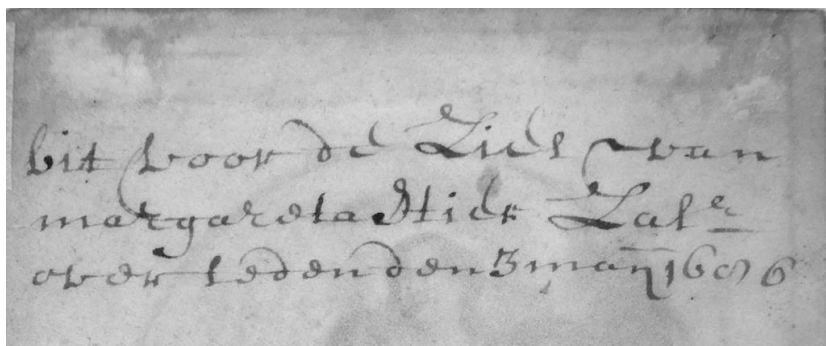 bit voor de Ziel van
margareta Stier Zalr
over leden den 3 maij 1686